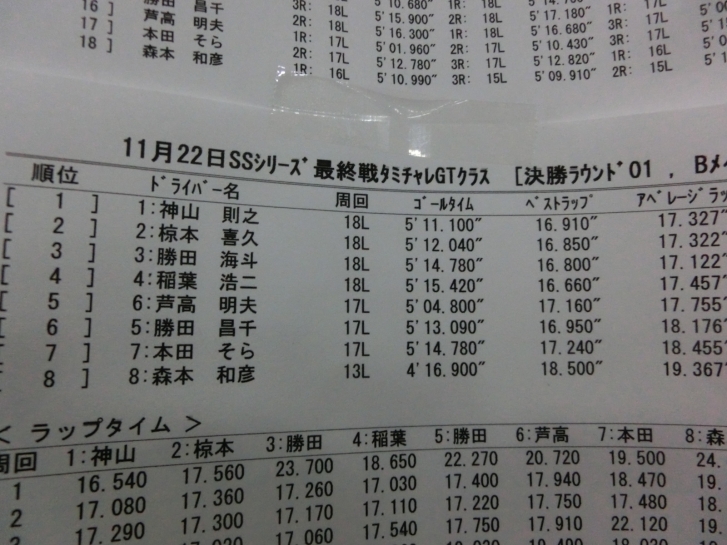 16 ] 勝田 昌千 3R: 18L 5'10.680" 1R: 18L
17 ] 芦高 明夫 2R: 18L 5'15.900" 2R: 18L 5'17.180" 1R: 17L
18 ] 本田 そら 1R: 17L 5'16.300" 1R: 18L 5'16.680" 3R: 17L
森本 和彦 2R: 17L 5'01.960" 2R: 17L 5'10.430" 3R: 17L
1R: 17L 5'12.780" 3R: 17L 5'12.820" 1R: 16L
1R: 16L 5'10.990" 3R: 15L 5'09.910" 2R: 15L
11月22日SSシリーズ 最終戦タミチャレGTクラス [決勝ラウンド01 , Bメ
順位 ドライバー名 周回 ゴールタイム ベストラップ アベレージラッ
[ 1 ] 1:神山 則之 18L 5'11.100" 16.910" 17.327"
[ 2 ] 2:椋本 喜久 18L 5'12.040" 16.850" 17.322"
[ 3 ] 3:勝田 海斗 18L 5'14.780" 16.800" 17.122"
[ 4 ] 4:稲葉 浩二 18L 5'15.420" 16.660" 17.457"
[ 5 ] 6:芦高 明夫 17L 5'04.800" 17.160" 17.755"
[ 6 ] 5:勝田 昌千 17L 5'13.090" 16.950" 18.176"
[ 7 ] 7:本田 そら 17L 5'14.780" 17.240" 18.455"
[ 8 ] 8:森本 和彦 13L 4'16.900" 18.500" 19.367"
< ラップタイム >
周回 1:神山 2:椋本 3:勝田 4:稲葉 5:勝田 6:芦高 7:本田 8:森
1 16.540 17.560 23.700 18.650 22.270 20.720 19.500 24.
2 17.080 17.360 17.260 17.030 17.400 17.940 18.470 19.
3 17.290 17.300 17.170 17.110 17.220 17.750 17.480 18.
17.060 17.540 17.750 17.910 22.120 19.